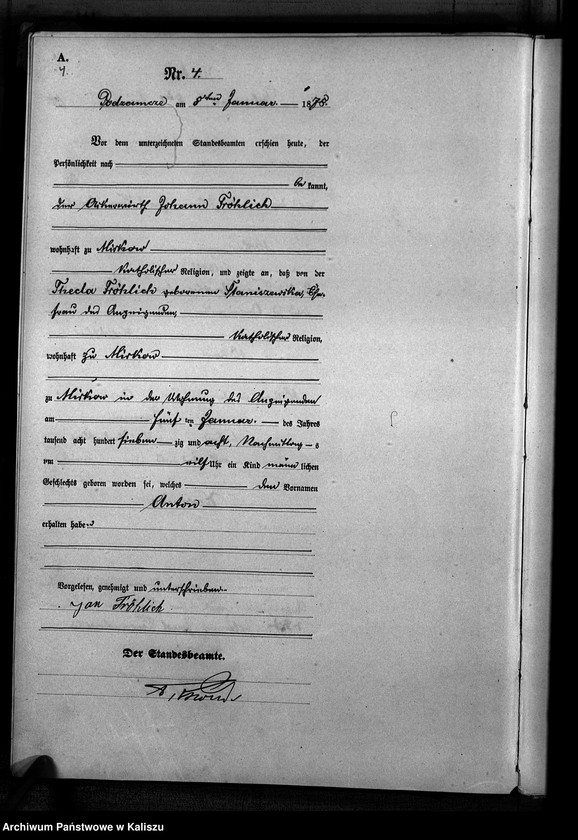 A.
4.
Nr. 4.
Podzamcze am 8ten Januar 1878.
Vor dem unterzeichneten Standesbeamten erschien heute, der
Persönlichkeit nach
be kannt,
der Ackerwirth Johann Fröhlich
wohnhaft zu Mirkow
katholischer Religion, und zeigte an, daß von der
Thecla Fröhlich geborenen Staniszewska, Ehe-
frau des Anzeigenden,
katholischer Religion,
wohnhaft zu Mirkow
zu Mirkow in der Wohnung des Anzeigenden
am fünf ten Januar des Jahres
tausend acht hundert sieben zig und acht, Nachmittag s
um eilf Uhr ein Kind männ lichen
Geschlechts geboren worden sei, welches den Vornamen
Anton
erhalten habe
Vorgelesen, genehmigt und unterschrieben
Jan Fröhlich
Der Standesbeamte.
Archiwum Państwowe w Kaliszu